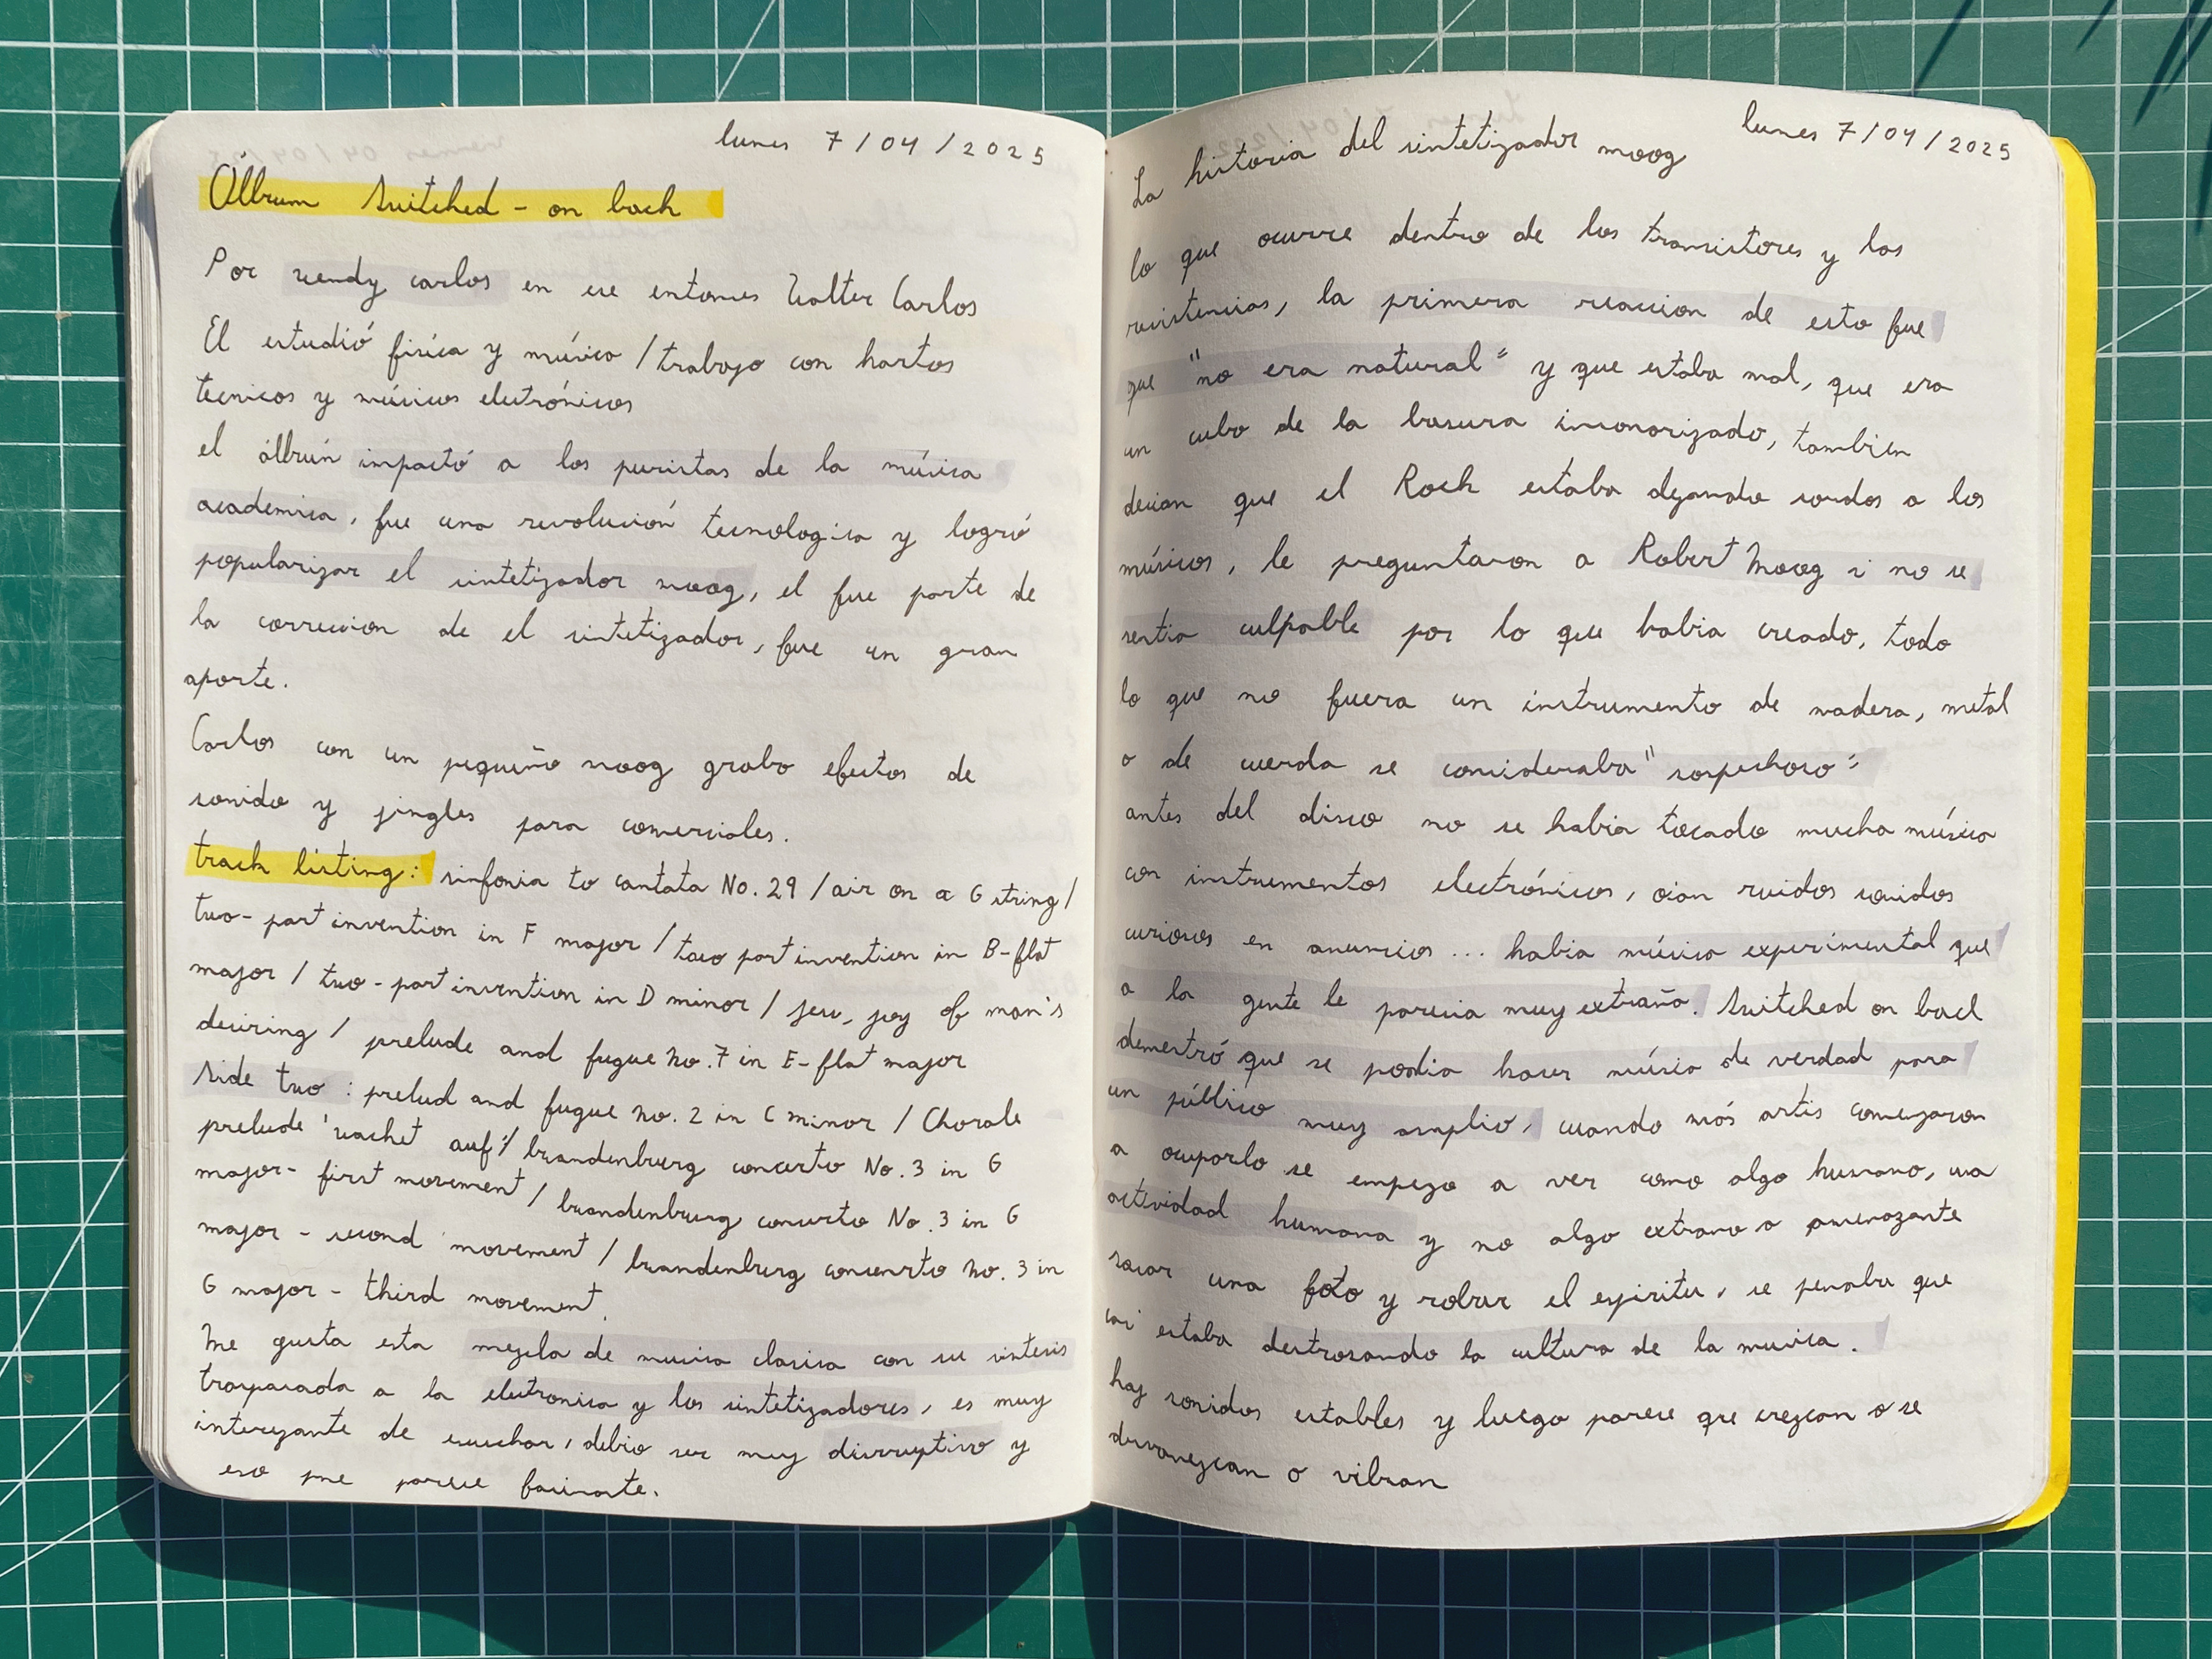 lunes 7/04/2025
Álbum Switched - on bach
Por wendy carlos en ese entonces Walter Carlos
El estudió física y músico / trabajo con hartos
tecnicos y músicos electrónicos
el álbún impactó a los puristas de la música
academica, fue una revolución tecnologica y logró
popularizar el sintetizador moog, el fue parte de
la correccion de el sintetizador, fue un gran
aporte.
Carlos con un pequeño moog grabo efectos de
sonido y jingles para comerciales.
track listing: sinfonia to cantata No. 29 / air on a G string /
two-part invention in F major / two part invention in B-flat
major / two-part invention in D minor / jesu, joy of man's
desiring / prelude and fugue No. 7 in E-flat major
Side two : prelud and fugue No. 2 in C minor / Chorale
prelude 'wachet auf' / brandenburg concerto No. 3 in G
major- first movement / brandenburg concerto No. 3 in G
major - second movement / brandenburg concerto No. 3 in
G major - third movement.
Me gusta esta mezcla de musica clasica con su sintesis
traspasada a la electronica y los sintetizadores, es muy
interezante de escuchar, debio ser muy disrruptivo y
eso me parece facinante.
lunes 7/04/2025
La historia del sintetizador moog
lo que ocurre dentro de los transistores y las
resistencias, la primera reaccion de esto fue
que "no era natural" y que estaba mal, que era
un cubo de la basura insonorizado, tambien
decian que el Rock estaba dejando sordos a los
músicos, le preguntaron a Robert Moog si no se
sentia culpable por lo que habia creado, todo
lo que no fuera un instrumento de madera, metal
o de cuerda se consideraba "sospechoso"
antes del disco no se habia tocado mucha música
con instrumentos electrónicos, oian ruidos sonidos
curiosos en anuncios ... habia música experimental que
a la gente le parecia muy extraña. Switched on bach
demostró que se podia hacer música de verdad para
un público muy amplio, cuando más artis comenzaron
a ocuparlo se empezo a ver como algo humano, una
actividad humana y no algo extrano o amenazante
sacar una foto y robar el espiritu, se pensaba que
casi estaba destrosando la cultura de la musica.
hay sonidos estables y luego parece que crezcan o se
desvanezcan o vibran